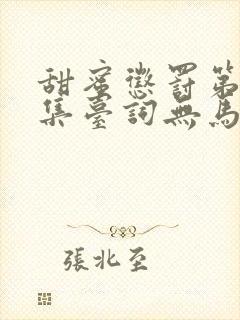 甜蜜懲罰第
集臺詞無馬
張北至